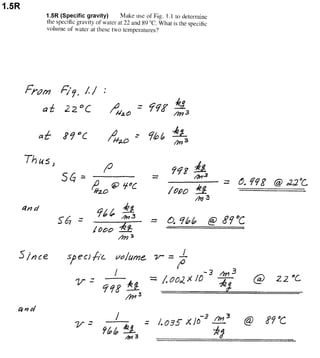 1.5R
1.5R (Specific gravity) Make use of Fig. 1.1 to determine
the specific gravity of water at 22 and 89 °C. What is the specific
volume of water at these two temperatures?
From Fig. 1.1 :
at 22°C ρ_H2O = 998 kg/m³
at 89°C ρ_H2O = 966 kg/m³
Thus,
SG = ρ / ρ_H2O @ 4°C = 998 kg/m³ / 1000 kg/m³ = 0.998 @ 22°C
and
SG = 966 kg/m³ / 1000 kg/m³ = 0.966 @ 89°C
Since specific volume v = 1/ρ
v = 1 / 998 kg/m³ = 1.002 x 10⁻³ m³/kg @ 22°C
and
v = 1 / 966 kg/m³ = 1.035 x 10⁻³ m³/kg @ 89°C